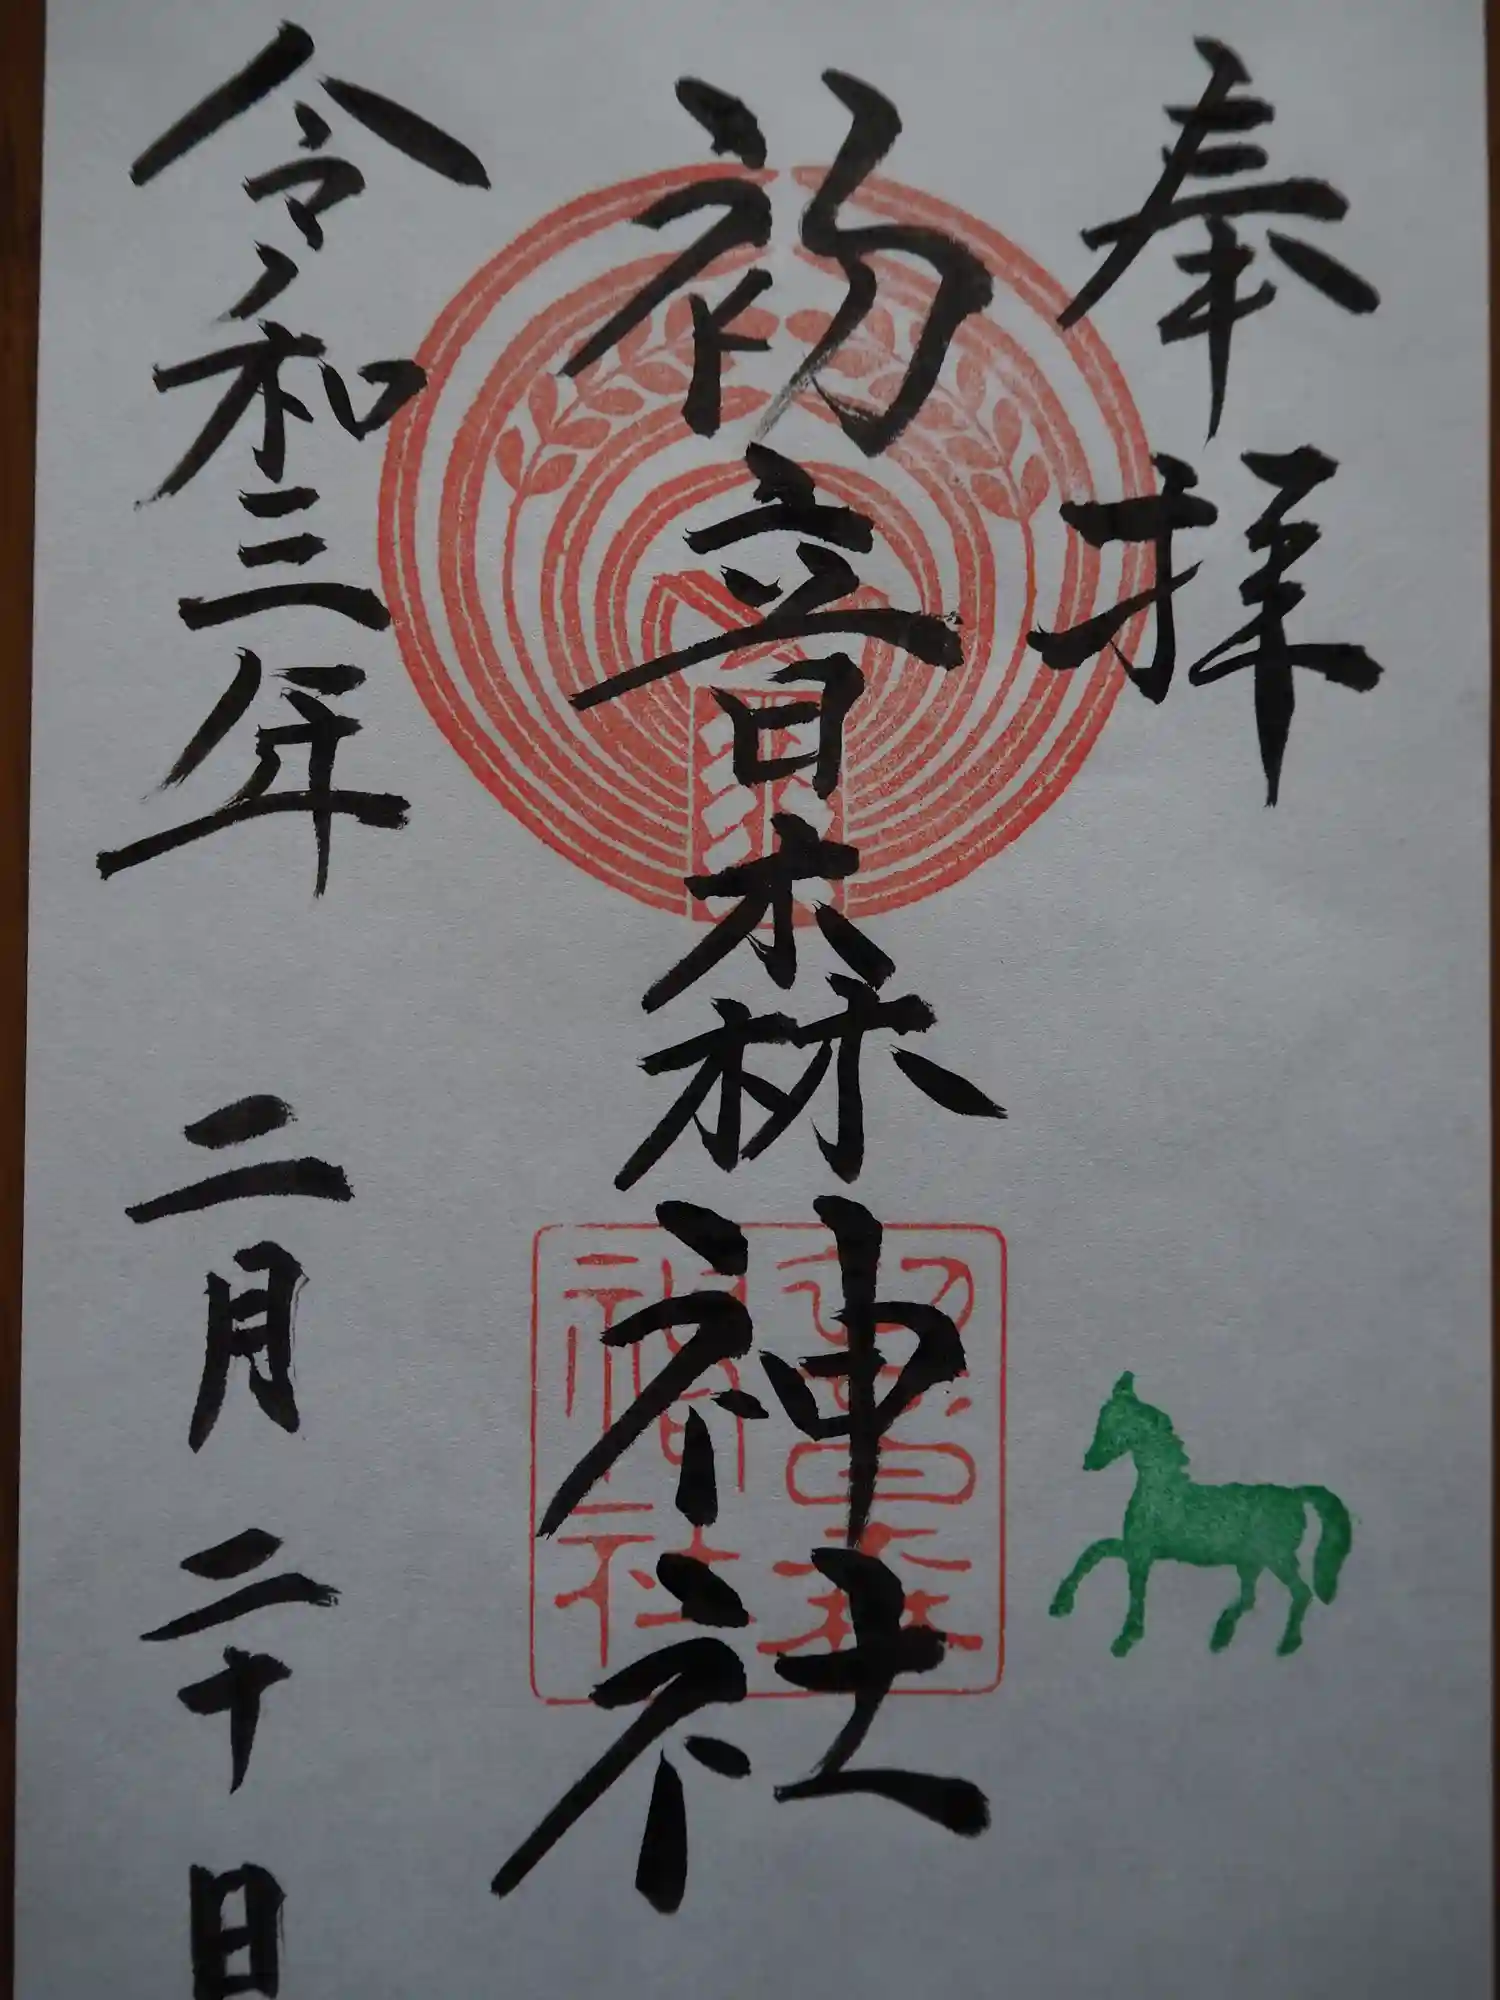 奉拝
初音森神社
初音森神社
令和三年 二月 二十日